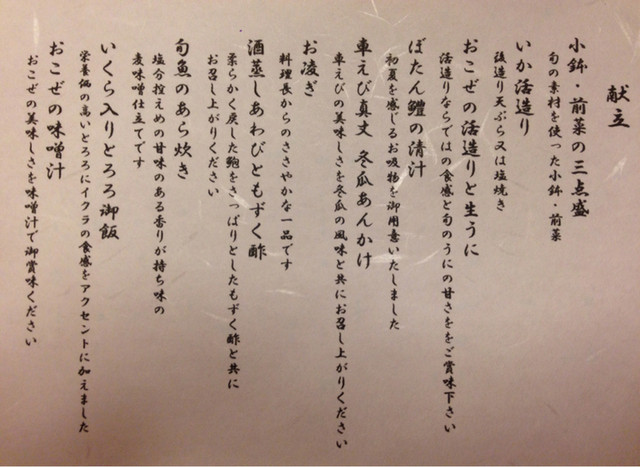 献立
小鉢・前菜の三点盛
旬の素材を使った小鉢・前菜
いか活造り
後造り天ぷら又は塩焼き
おこぜの活造りと生うに
活造りならではの食感と旬のうにの甘さををご賞味下さい
ぼたん鱧の清汁
初夏を感じるお吸物を御用意いたしました
車えび真丈 冬瓜あんかけ
車えびの美味しさを冬瓜の風味と共にお召し上がりください
お凌ぎ
料理長からのささやかな一品です
酒蒸しあわびともずく酢
柔らかく戻した鮑をさっぱりとしたもずく酢と共に
お召し上がりください
旬魚のあら炊き
塩分控えめの甘味のある香りが持ち味の
麦味噌仕立てです
いくら入りとろろ御飯
栄養価の高いとろろにイクラの食感をアクセントに加えました
おこぜの味噌汁
おこぜの美味しさを味噌汁で御賞味ください